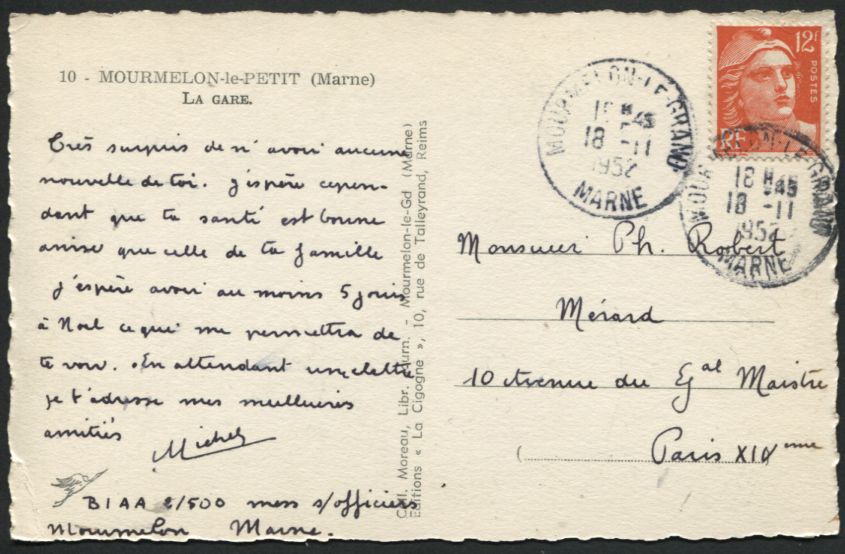 10 - MOURMELON-le-PETIT (Marne)
LA GARE.
Très surpris de n'avoir aucune
nouvelle de toi. J'espère cepen-
dant que ta santé est bonne
ainsi que celle de ta famille
J'espère avoir au moins 5 jours
à Noel ce qui me permettra de
te voir. En attendant une lettre
je t'adresse mes meilleures
amitiés
Michel
BIAA 2/500 mess s/officiers
Mourmelon Marne.
Coll. Moreau, Libr. Journ. - Mourmelon-le-Gd (Marne)
Editions « La Cigogne », 10, rue de Talleyrand, Reims
12f
POSTES
RF
MOURMELON-LE-GRAND
18 H 45
18 -11
1952
MARNE
MOURMELON-LE-GRAND
18 H 45
18 -11
1952
MARNE
Monsieur Ph. Robert
Mérard
10 Avenue du Gal Maistre
Paris XIVeme